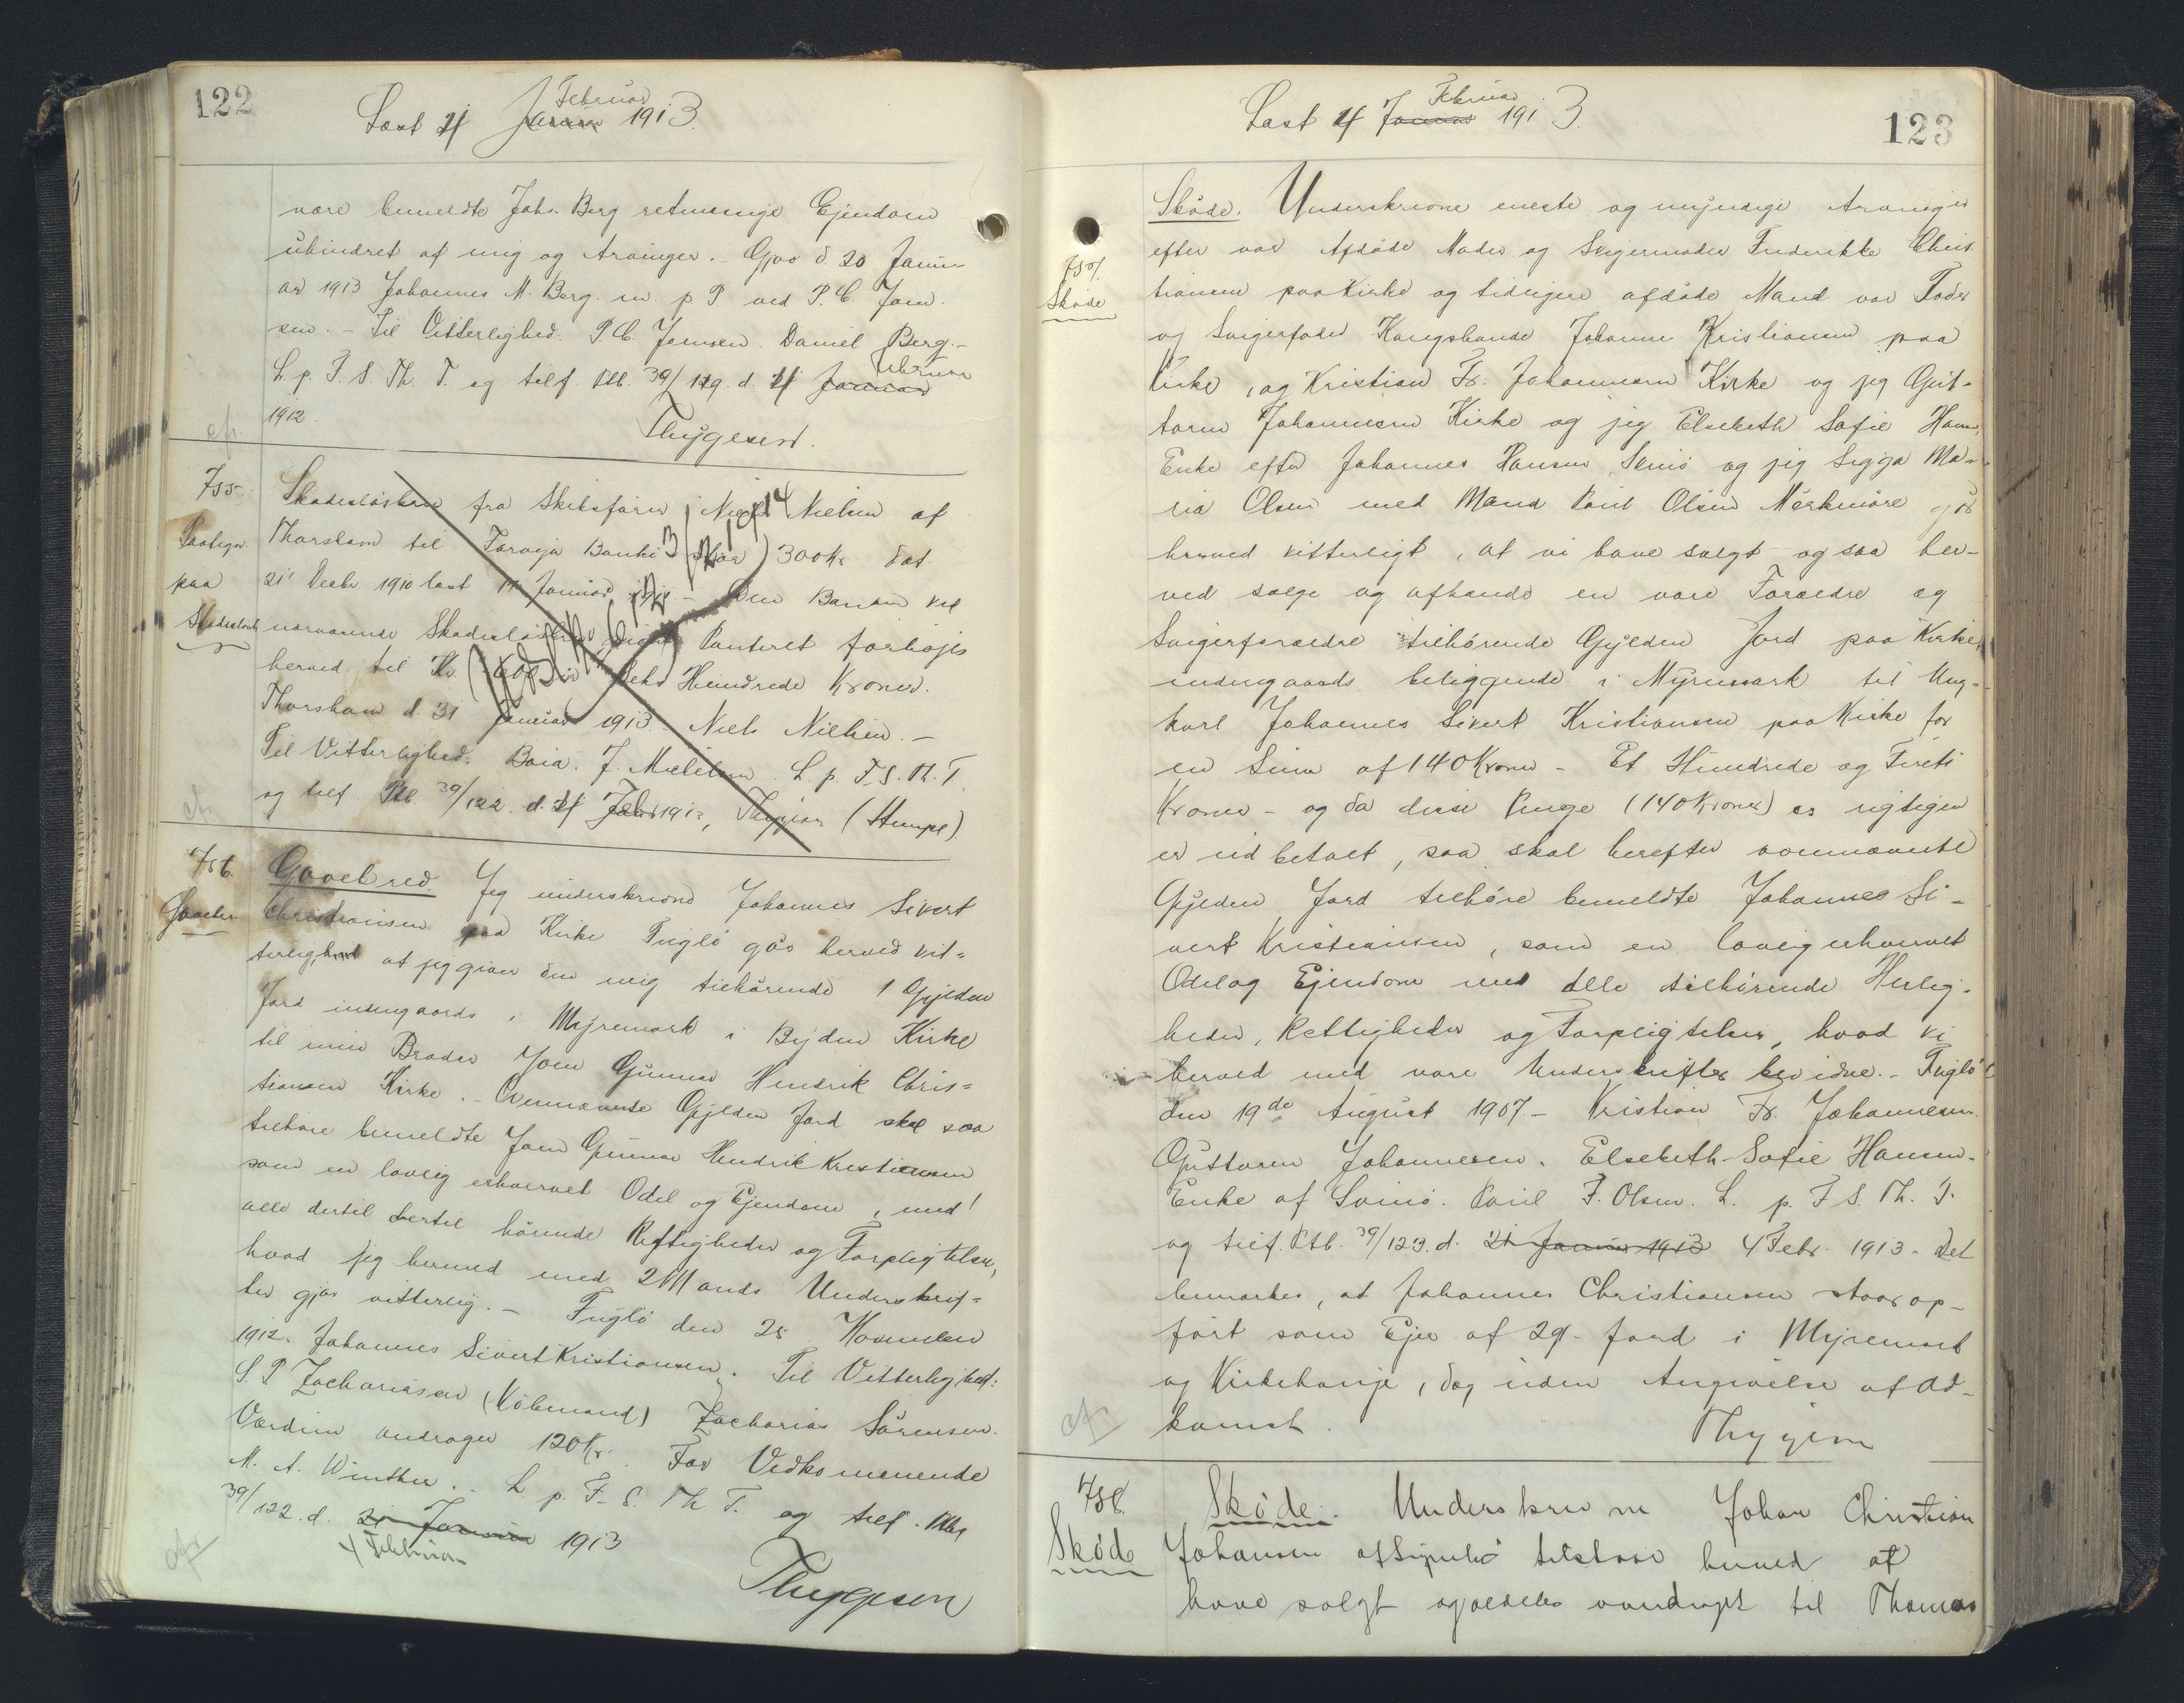 122
Læst 4 Januar Februar 1913.
være bemeldte Johs. Berg retmæssige Ejendom
uhindret af mig og Arvinger. - Gjov d 20 Janu-
ar 1913 Johannes M. Berg. m. p. P. ved P. C. Joen-
sen. - Til Vitterlighed. P. C. Joensen. Daniel Berg. -
L. p. F. S. Th. T. og tilf. Ptb. 39/129. d. 4 Januar Februar
1912.
Thygesen.
cfr.
755.
Paategn.
paa
Skadesløsb.
Skadesløsbrev fra Skibsfører Niels Nielsen af
Thorshavn til Færøja Banki 300 Kr dat.
21' Decbr 1910 læst 17 Januar - Den Banken ved
nærværende Skadesløsbrev Panteret forhøjes
herved til Kr. 600 Seks Hundrede Kroner.
Thorshavn d. 31 Januar 1913. Niels Nielsen. -
Til Vitterlighed. J. Mikkelsen. L. p. F. S. Th. T.
og tilf. Ptb 39/122. d. 4 Febr 1913, Thygesen (Stempel)
cfr
756.
Gavebr
Gavebrev. Jeg underskrevne Johannes Sivert
Christiansen paa Kirke Fuglø gør herved vit-
terlighed at jeg giver den mig tilhørende 1 Gylden
Jord indengaards i Myremark i Bygden Kirke
til min Broder Joen Gunnar Hendrik Chris-
tiansen Kirke. - Ovennævnte Gylden Jord skal saa
tilhøre bemeldte Joen Gunnar Hendrik Kristiansen
som en lovlig erhvervet Odel og Ejendom, med
alle dertil dertil hørende Rettigheder og Forpligtelser,
hvad jeg herved med 2 Mands Underskrif-
ter gjør vitterlig. - Fuglø den 25 November
1912. Johannes Sivert Kristiansen. Til Vitterlighed:
S. P. Zachariasen (Købmand) Zacharias Sørensen.
Værdien andrager 120 Kr. For Vedkommende
M. A. Winther. - L. p. F. S. Th T. og tilf. Ptb
39/122. d. 21 Januar 1913
4 Februar
Thygesen
cfr
123
Læst 4 Januar Februar 1913.
757.
Skøde
Skøde. Underskrevne eneste og myndige Arvinger
efter vor Afdøde Moder og Svigermoder Frederikke Chris-
tiansen paa Kirke og tidligere afdøde Mand vor Fader
og Svigerfader Kongsbonde Johannes Kristiansen paa
Kirke, og Kristian Fr. Johannesen Kirke og jeg Gut-
torm Johannesen Kirke og jeg Elsebeth Sofie Hans.
Enke efter Johannes Hansen Svinø og jeg Sigga Ma-
ria Olsen med Mand Poul Olsen Mørkenøre gør
herved vitterligt, at vi have solgt og saa her-
ved sælge og afhænde en vore Forældre og
Svigerforældre tilhørende Gylden Jord paa Kirke,
indengaards beliggende i Myremark til Ung-
karl Johannes Sivert Kristiansen paa Kirke for
en Sum af 140 Kroner - Et Hundrede og Fireti
Kroner - og da disse Penge (140 Kroner) er rigtigen
er udbetalt, saa skal herefter ovennævnte
Gylden Jord tilhøre bemeldte Johannes Si-
vert Kristiansen, som en lovlig erhvervet
Odel og Ejendom med alle tilhørende Herlig-
heder, Rettigheder og Forpligtelser, hvad vi
herved med vore Underskrifter bevidne. - Fuglø
den 19de August 1907. - Kristian Fr. Johannesen.
Guttorm Johannesen. Elsebeth Sofie Hansen.
Enke af Svinø. Poul F. Olsen. L. p. F. S. Th. T.
og tilf. Ptb. 39/123. d. 21 Januar 1913 4 Febr. 1913. Det
bemærkes, at Johannes Christiansen staar op-
ført som Ejer af 2 g. Jord i Myremark
og Kirkehauje, dog uden Angivelse af Ad-
komst.
Thygesen
cfr
758.
Skøde
Skøde. Underskrevne Johan Christian
Johansen af tilstaar herved at
have solgt og aldeles overdraget til Thomas